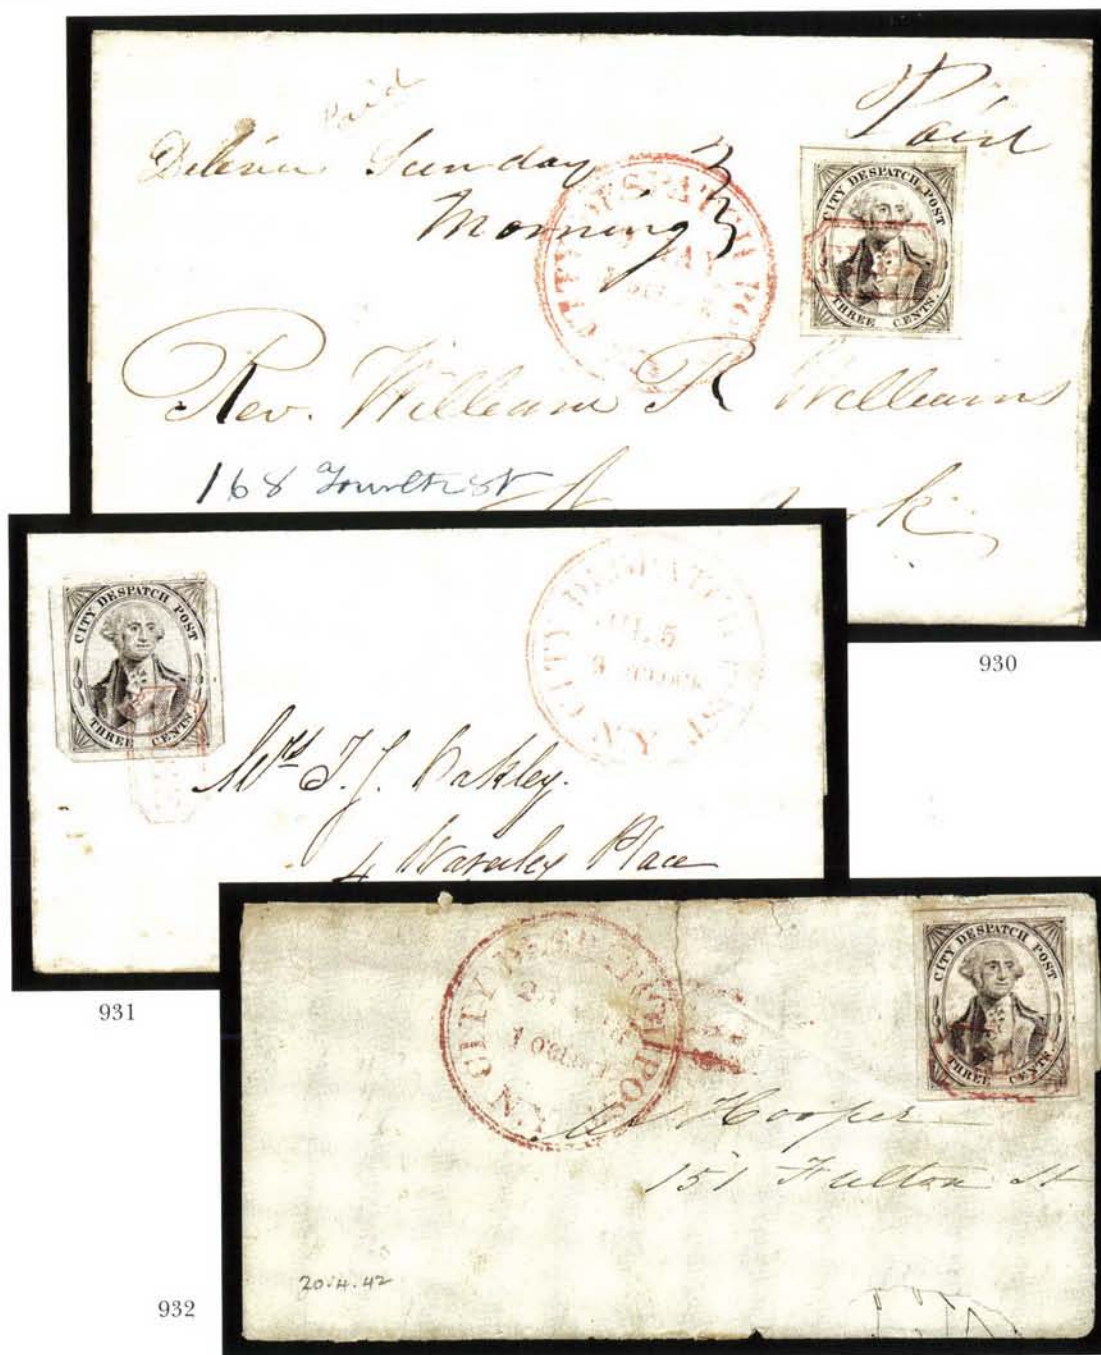 Paid
Paid
Deliver Sunday
Morning
CITY DESPATCH POST
THREE CENTS.
CITY DESPATCH PO
Rev. William R Williams
168 Fourth st
k
930
CITY DESPATCH POST
THREE CENTS.
CITY DESPATCH POST N.Y.
JUL 5
9 O'CLOCK
Mrs T. J. Oakley.
4 Waverley Place
931
CITY DESPATCH POST
THREE CENTS.
CITY DESPATCH POST N.Y.
1 O'CLOCK
Hooper
151 Fulton St
20.4.42
932